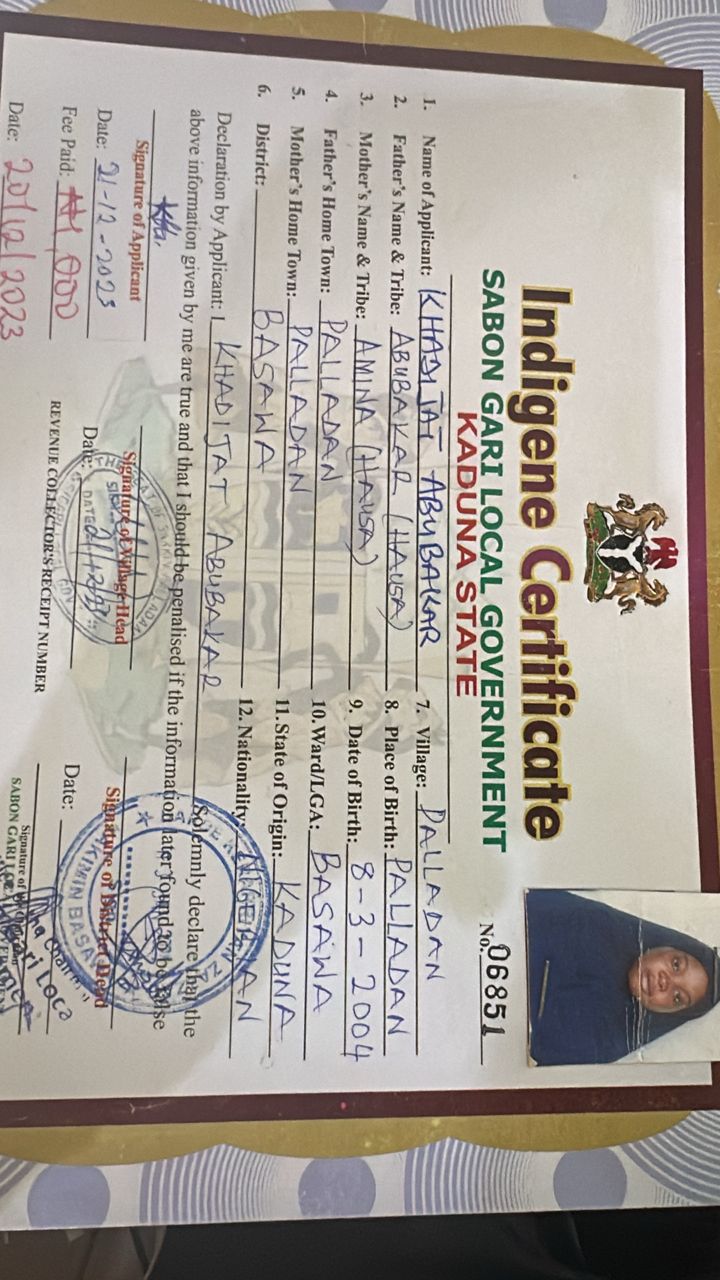 Indigene Certificate
SABON GARI LOCAL GOVERNMENT
KADUNA STATE
No. 06851
1. Name of Applicant: KHADIJAT ABUBAKAR
2. Father's Name & Tribe: ABUBAKAR (HAUSA)
3. Mother's Name & Tribe: AMINA (HAUSA)
4. Father's Home Town: PALLADAN
5. Mother's Home Town: PALLADAN
6. District: BASAWA
7. Village: PALLADAN
8. Place of Birth: PALLADAN
9. Date of Birth: 8-3-2004
10. Ward/LGA: BASAWA
11. State of Origin: KADUNA
12. Nationality:
Declaration by Applicant: I KHADIJAT ABUBAKAR Solemnly declare that the
above information given by me are true and that I should be penalised if the information later found to be false
Signature of Applicant
Date: 21-12-2023
Signature of Village Head
Date:
DATE
Signature of District Head
Date:
BASAWA
Fee Paid: ₦1,000
REVENUE COLLECTOR'S RECEIPT NUMBER
Date: 20/12/2023
Signature of
SABON GARI